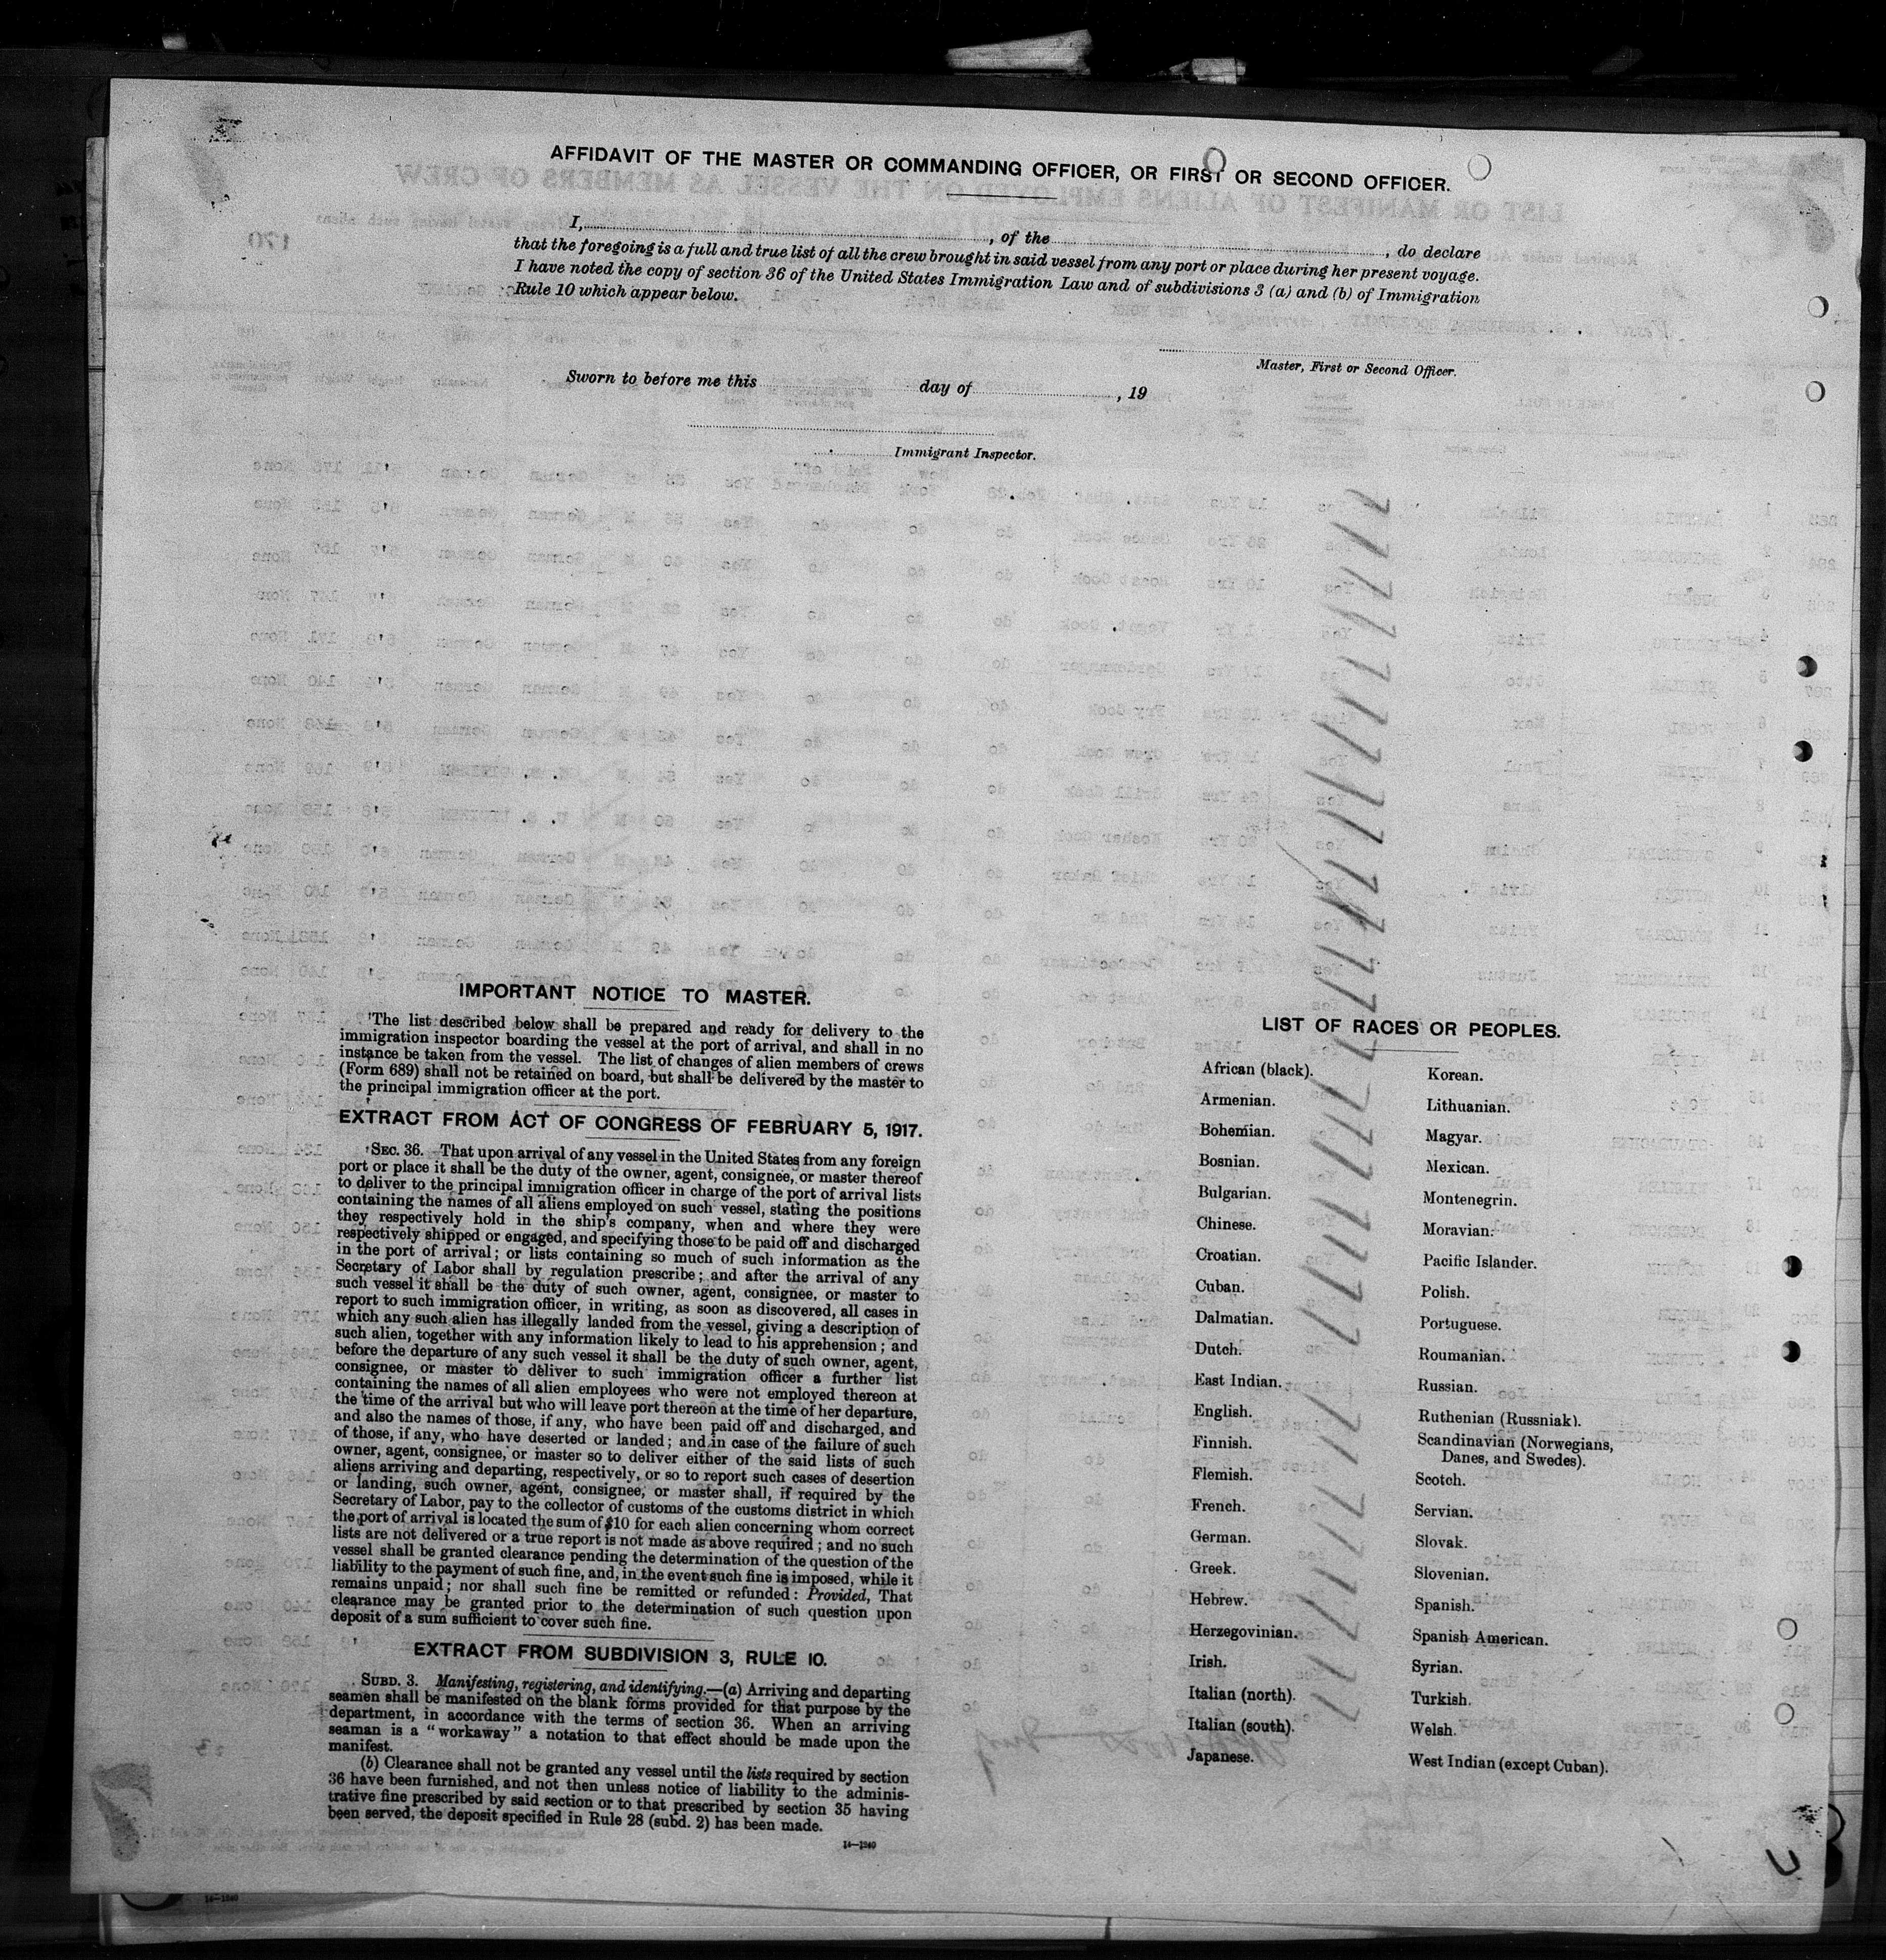 AFFIDAVIT OF THE MASTER OR COMMANDING OFFICER, OR FIRST OR SECOND OFFICER.
I,, of the, do declare
that the foregoing is a full and true list of all the crew brought in said vessel from any port or place during her present voyage.
I have noted the copy of section 36 of the United States Immigration Law and of subdivisions 3 (a) and (b) of Immigration
Rule 10 which appear below.
Master, First or Second Officer.
Sworn to before me this day of, 19
Immigrant Inspector.
IMPORTANT NOTICE TO MASTER.
The list described below shall be prepared and ready for delivery to the
immigration inspector boarding the vessel at the port of arrival, and shall in no
instance be taken from the vessel. The list of changes of alien members of crews
(Form 689) shall not be retained on board, but shall be delivered by the master to
the principal immigration officer at the port.
EXTRACT FROM ACT OF CONGRESS OF FEBRUARY 5, 1917.
SEC. 36. That upon arrival of any vessel in the United States from any foreign
port or place it shall be the duty of the owner, agent, consignee, or master thereof
to deliver to the principal immigration officer in charge of the port of arrival lists
containing the names of all aliens employed on such vessel, stating the positions
they respectively hold in the ship's company, when and where they were
respectively shipped or engaged, and specifying those to be paid off and discharged
in the port of arrival; or lists containing so much of such information as the
Secretary of Labor shall by regulation prescribe; and after the arrival of any
such vessel it shall be the duty of such owner, agent, consignee, or master to
report to such immigration officer, in writing, as soon as discovered, all cases in
which any such alien has illegally landed from the vessel, giving a description of
such alien, together with any information likely to lead to his apprehension; and
before the departure of any such vessel it shall be the duty of such owner, agent,
consignee, or master to deliver to such immigration officer a further list
containing the names of all alien employees who were not employed thereon at
the time of the arrival but who will leave port thereon at the time of her departure,
and also the names of those, if any, who have been paid off and discharged, and
of those, if any, who have deserted or landed; and in case of the failure of such
owner, agent, consignee, or master so to deliver either of the said lists of such
aliens arriving and departing, respectively, or so to report such cases of desertion
or landing, such owner, agent, consignee, or master shall, if required by the
Secretary of Labor, pay to the collector of customs of the customs district in which
the port of arrival is located the sum of $10 for each alien concerning whom correct
lists are not delivered or a true report is not made as above required; and no such
vessel shall be granted clearance pending the determination of the question of the
liability to the payment of such fine, and, in the event such fine is imposed, while it
remains unpaid; nor shall such fine be remitted or refunded: Provided, That
clearance may be granted prior to the determination of such question upon
deposit of a sum sufficient to cover such fine.
EXTRACT FROM SUBDIVISION 3, RULE 10.
SUBD. 3. Manifesting, registering, and identifying.—(a) Arriving and departing
seamen shall be manifested on the blank forms provided for that purpose by the
department, in accordance with the terms of section 36. When an arriving
seaman is a "workaway" a notation to that effect should be made upon the
manifest.
(b) Clearance shall not be granted any vessel until the lists required by section
36 have been furnished, and not then unless notice of liability to the adminis-
trative fine prescribed by said section or to that prescribed by section 35 having
been served, the deposit specified in Rule 28 (subd. 2) has been made.
14—1240
LIST OF RACES OR PEOPLES.
African (black).
Armenian.
Bohemian.
Bosnian.
Bulgarian.
Chinese.
Croatian.
Cuban.
Dalmatian.
Dutch.
East Indian.
English.
Finnish.
Flemish.
French.
German.
Greek.
Hebrew.
Herzegovinian.
Irish.
Italian (north).
Italian (south).
Japanese.
Korean.
Lithuanian.
Magyar.
Mexican.
Montenegrin.
Moravian.
Pacific Islander.
Polish.
Portuguese.
Roumanian.
Russian.
Ruthenian (Russniak).
Scandinavian (Norwegians,
Danes, and Swedes).
Scotch.
Servian.
Slovak.
Slovenian.
Spanish.
Spanish American.
Syrian.
Turkish.
Welsh.
West Indian (except Cuban).
14—1240